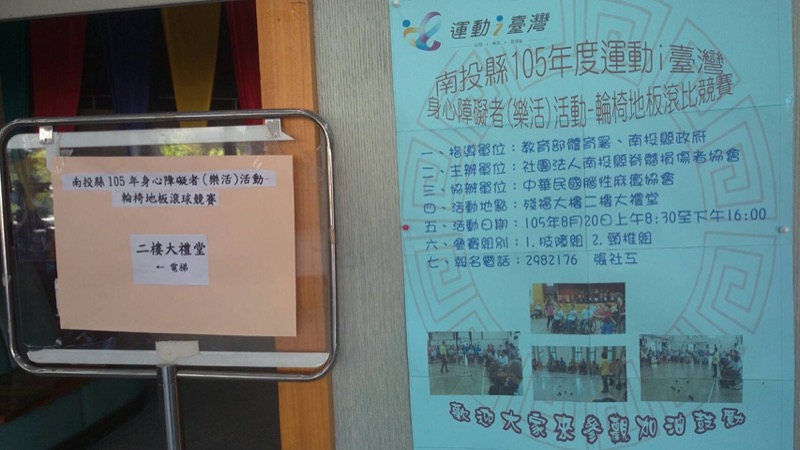 南投縣 105 年身心障礙者(樂活)活動-
輪椅地板滾球競賽
二樓大禮堂
← 電梯
運動i臺灣
南投縣105年度運動i臺灣
身心障礙者(樂活)活動-輪椅地板滾比競賽
一、指導單位:教育部體育署、南投縣政府
二、主辦單位:社團法人南投縣脊髓損傷者協會
三、協辦單位:中華民國腦性麻痺協會
四、活動地點:殘福大樓二樓大禮堂
五、活動日期:105年8月20日上午8:30至下午16:00
六、參賽組別:1.肢障組 2.頸椎組
七、報名電話:2982176 張社工
歡迎大家來參觀加油鼓勵